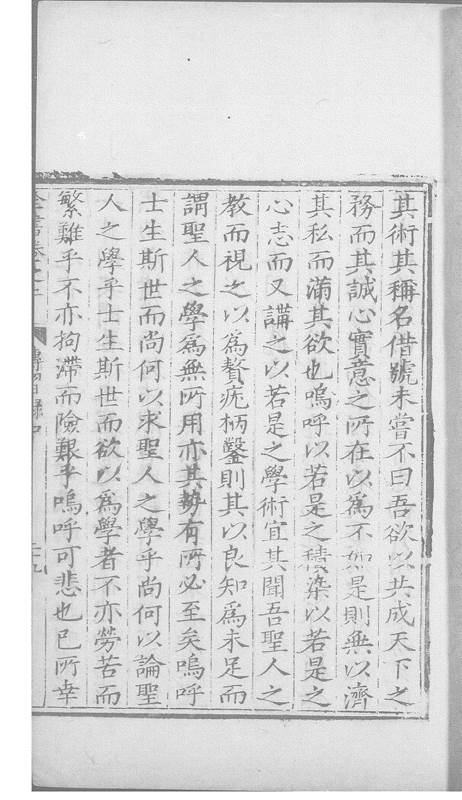 其術其稱名借號未嘗不曰吾欲以共成天下之
務而其誠心實意之所在以為不如是則無以濟
其私而滿其欲也嗚呼以若是之積染以若是之
心志而又講之以若是之學術宜其聞吾聖人之
教而視之以為贅疣枘鑿則其以良知為未足而
謂聖人之學為無所用亦其勢有所必至矣嗚呼
士生斯世而尚何以求聖人之學乎尚何以論聖
人之學乎士生斯世而欲以為學者不亦勞苦而
繁難乎不亦拘滯而險艱乎嗚呼可悲也已所幸